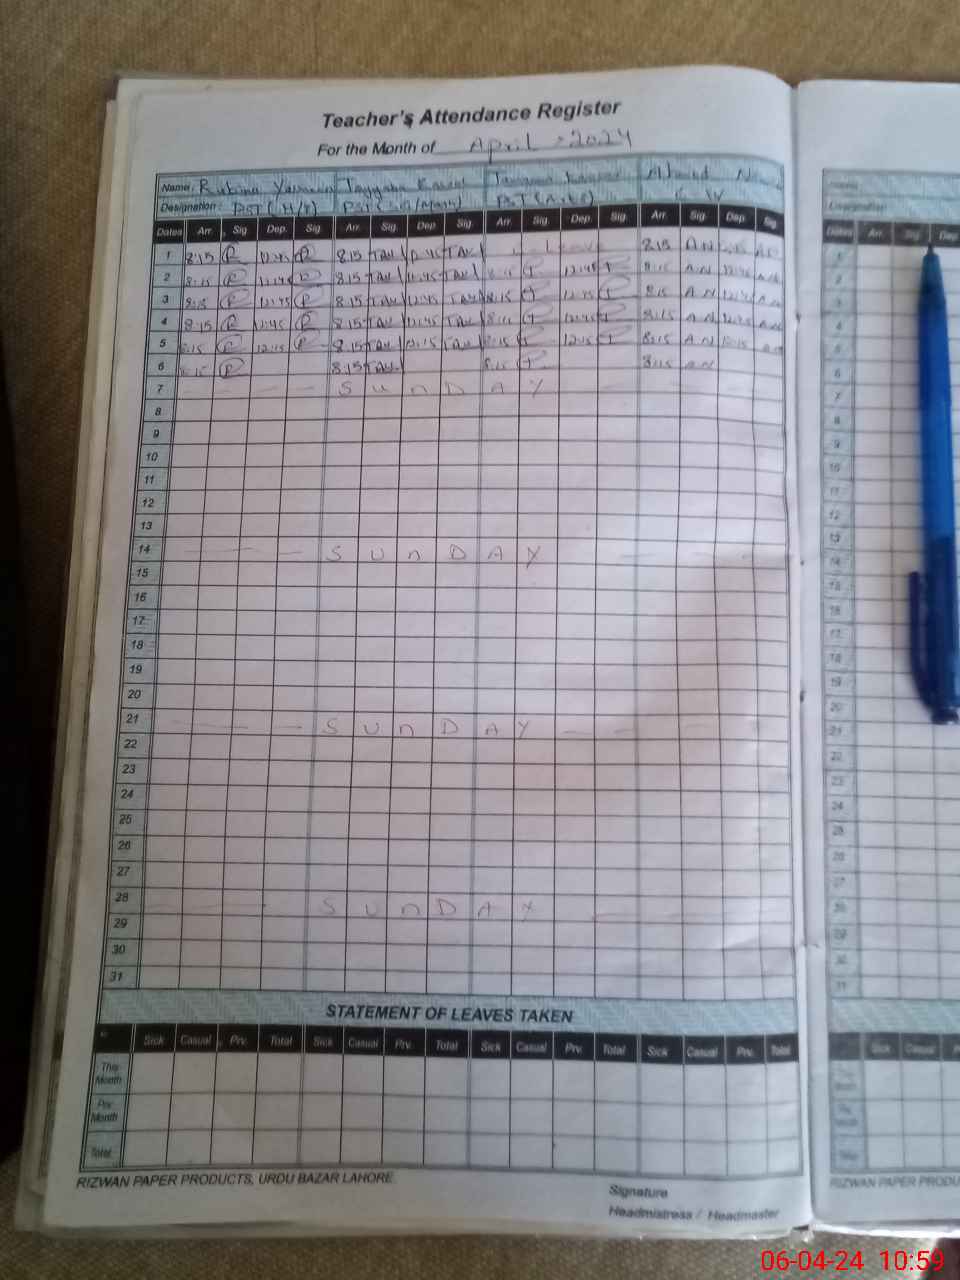 Teacher's Attendance Register
For the Month of April - 2024
Name: Rubina Tayyaba Kausar Ahmad
Designation: PST (H/T) PST PST C-IV
Dates Arr. Sig. Dep. Sig. Arr. Sig. Dep. Sig. Arr. Sig. Dep. Sig. Arr. Sig. Dep. Sig.
1 8:15 R 12:45 R 8:15 TAY 12:45 TAY Leave 8:15 A.N
2 8:15 R 12:45 R 8:15 TAY 12:45 TAY 8:15 T 12:45 T 8:15 A.N 12:45 A.N
3 8:15 R 12:45 R 8:15 TAY 12:45 TAY 8:15 T 12:45 T 8:15 A.N 12:45 A.N
4 8:15 R 12:45 R 8:15 TAY 12:45 TAY 8:15 T 12:45 T 8:15 A.N 12:45 A.N
5 8:15 R 12:15 R 8:15 TAY 12:15 TAY 8:15 T 12:15 T 8:15 A.N 12:15 A.N
6 8:15 R 8:15 TAY 8:15 T 8:15 A.N
7 SUNDAY
8
9
10
11
12
13
14 SUNDAY
15
16
17
18
19
20
21 SUNDAY
22
23
24
25
26
27
28 SUNDAY
29
30
31
STATEMENT OF LEAVES TAKEN
Sick Casual Prv. Total Sick Casual Prv. Total Sick Casual Prv. Total Sick Casual Prv. Total
This Month
Prv. Month
Total
RIZWAN PAPER PRODUCTS, URDU BAZAR LAHORE
Signature
Headmistress / Headmaster
Dates Arr. Sig. Dep.
Sick Casual
RIZWAN PAPER PRODU
06-04-24 10:59